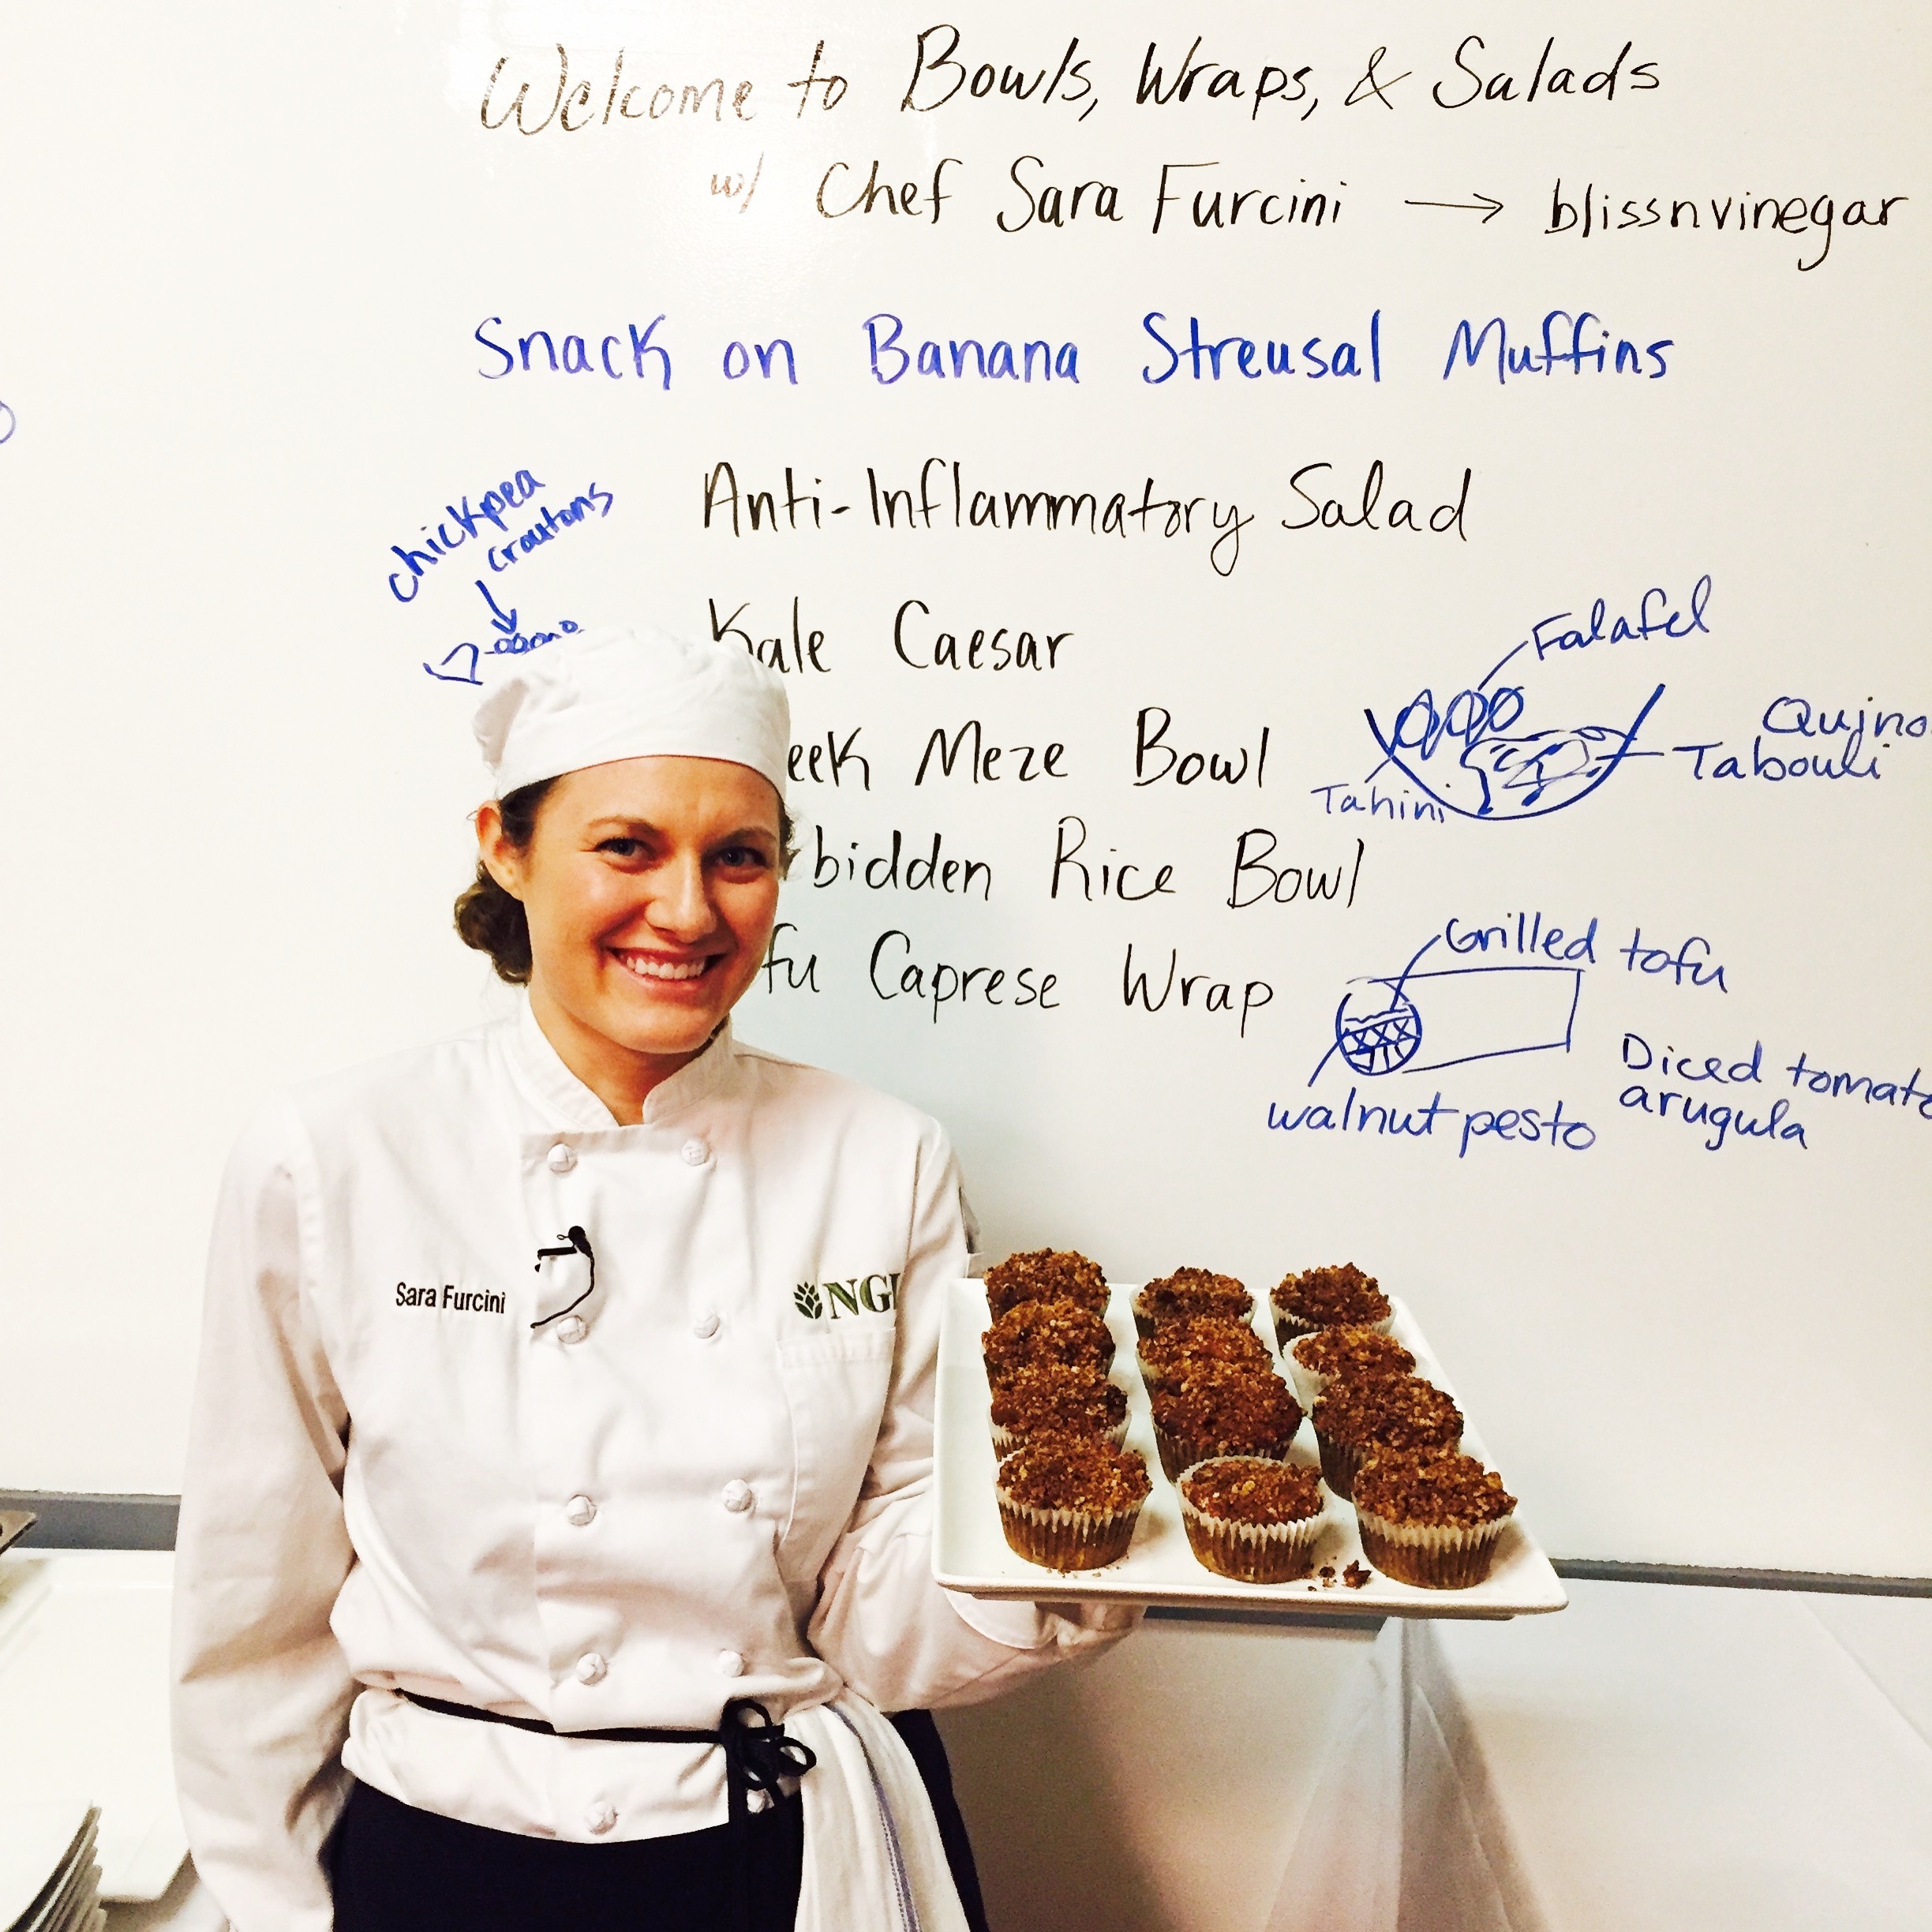 Welcome to Bowls, Wraps, & Salads
w/ Chef Sara Furcini → blissnvinegar
Snack on Banana Streusal Muffins
chickpea
croutons
Anti-Inflammatory Salad
Kale Caesar
Falafel
eek Meze Bowl
Tahini
Quino
Tabouli
bidden Rice Bowl
fu Caprese Wrap
Grilled tofu
walnut pesto
Diced tomato
arugula
Sara Furcini
NGI